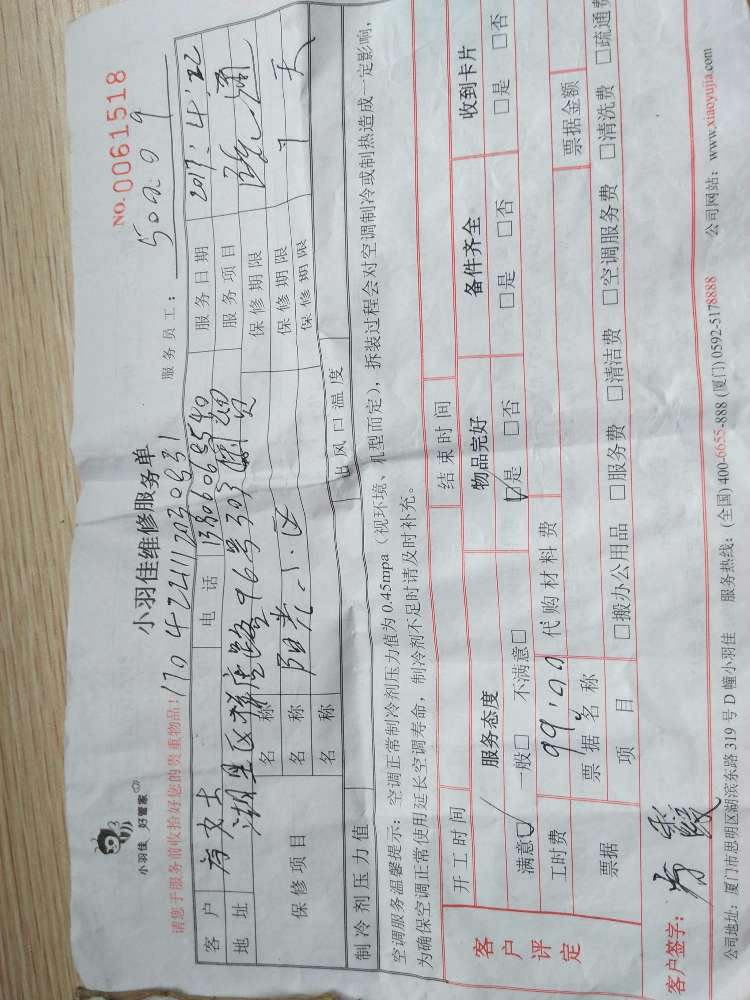 小羽佳 好管家
小羽佳维修服务单
NO. 0061518
请您于服务前收拾好您的贵重物品!
服务员工: 50209
客户 方女士 电话 服务日期 2017.4.22
地址 湖里区 路96号303 服务项目 疏通
保修项目 名称 保修期限
名称 阳光小区 保修期限 7天
名称 保修期限
制冷剂压力值 出风口温度
空调服务温馨提示: 空调正常制冷剂压力值为 0.45mpa(视环境、机型而定), 拆装过程会对空调制冷或制热造成一定影响,
为确保空调正常使用延长空调寿命, 制冷剂不足时请及时补充。
客户评定
开工时间 结束时间
服务态度 物品完好 备件齐全 收到卡片
满意□ 一般□ 不满意□ □是 □否 □是 □否 □是 □否
工时费 99.00 代购材料费
票据 票据名称 票据金额
项目 □搬办公用品 □服务费 □清洁费 □空调服务费 □清洗费 □疏通费
客户签字: 方
公司地址: 厦门市思明区湖滨东路 319 号 D 幢小羽佳 服务热线: (全国) 400-6655-888 (厦门) 0592-5178888 公司网站: www.xiaoyujia.com